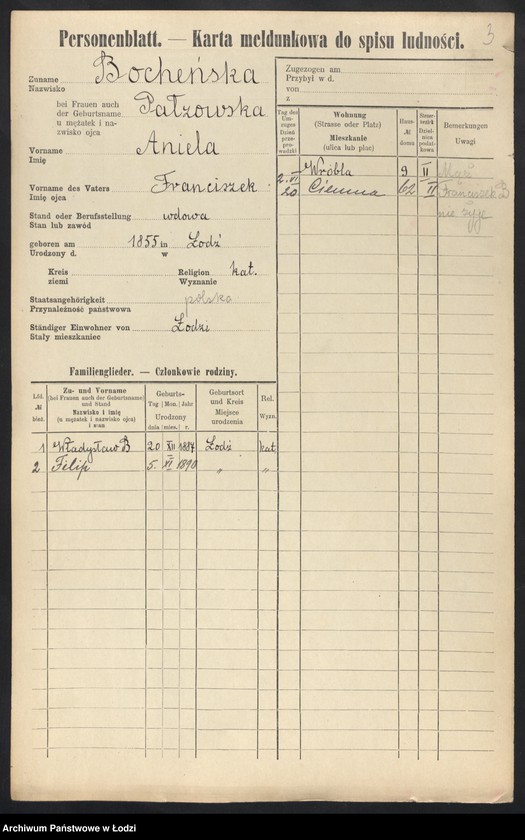 3
Personenblatt. — Karta meldunkowa do spisu ludności.
Zuname Bocheńska
Nazwisko
bei Frauen auch
der Geburtsname Pałzowska
u mężatek i na-
zwisko ojca
Vorname Aniela
Imię
Vorname des Vaters Franciszek
Imię ojca
Stand oder Berufsstellung wdowa
Stan lub zawód
geboren am 1855 in Łodź
Urodzony d. w
Kreis Religion kat.
ziemi Wyznanie
Staatsangehörigkeit polska
Przynależność państwowa
Ständiger Einwohner von Łodzi
Stały mieszkaniec
Zugezogen am
Przybył w d.
von
z
Tag des Um-zuges Dzień prze-pro-wadzki
Wohnung
(Strasse oder Platz)
Mieszkanie
(ulica lub plac)
Haus- № domu
Bemerkungen
Uwagi
2. VI Wróbla 9 II Mąż
20 Ciemna 62 II Franciszek B
nie żyje
Familienglieder. — Członkowie rodziny.
Lfd. № bież.
Zu- und Vorname
(bei Frauen auch der Geburtsname)
und Stand
Nazwisko i imię
(u mężatek i nazwisko ojca)
i stan
Geburts-
Tag Mon. Jahr
Urodzony
dnia mies. r.
Geburtsort
und Kreis
Miejsce
urodzenia
Rel.
Wyzn.
1 Władysław B 20 XII 1887 Łodź kat.
2 Filip 5. XI 1890 " "
Archiwum Państwowe w Łodzi